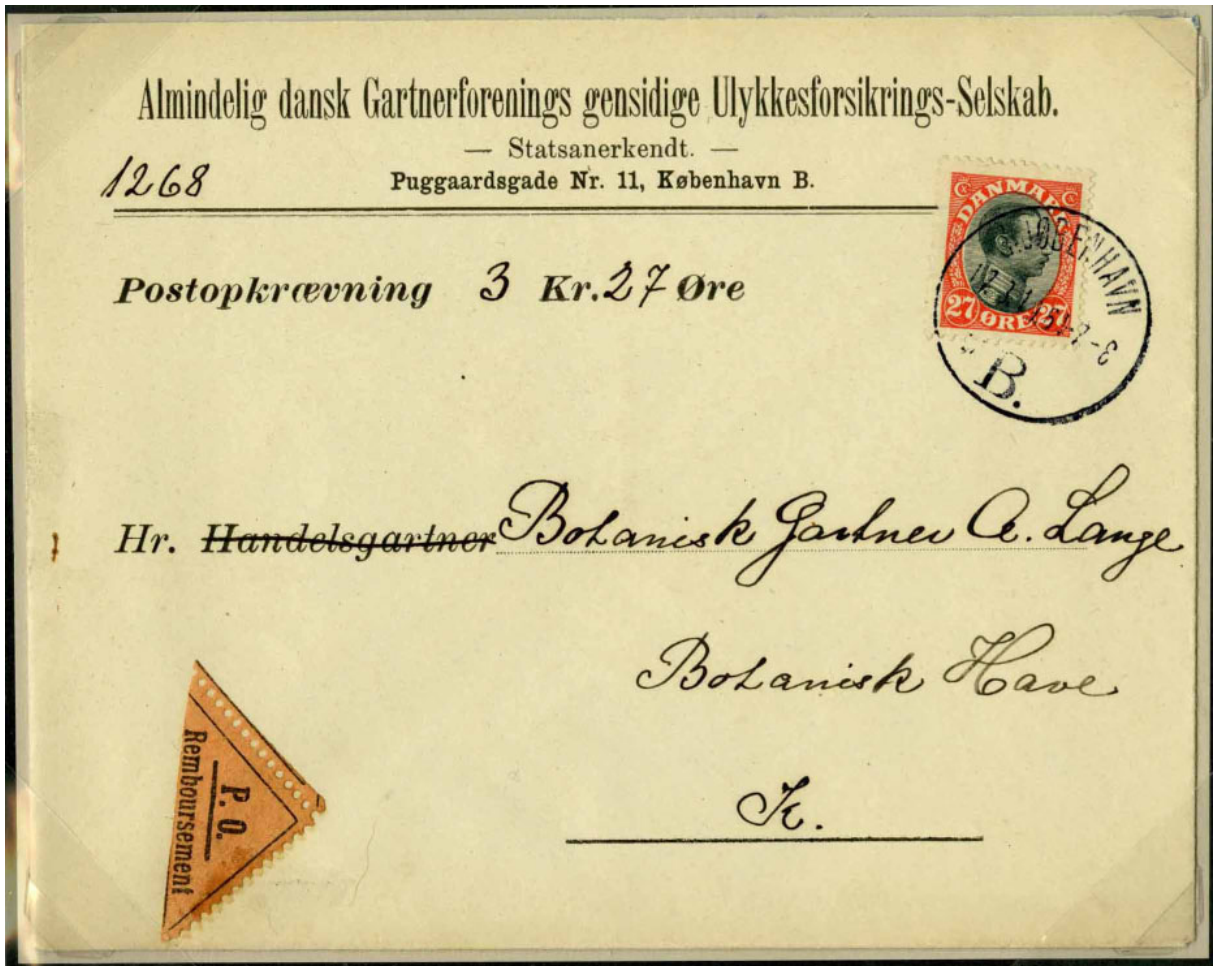 Almindelig dansk Gartnerforenings gensidige Ulykkesforsikrings-Selskab.
— Statsanerkendt. —
1268
Puggaardsgade Nr. 11, København B.
DANMARK
27 ØRE 27
KJØBENHAVN
B.
Postopkrævning 3 Kr. 27 Øre
Hr. Handelsgartner Botanisk Gartner A. Lange
Botanisk Have
K.
P. O.
Remboursement